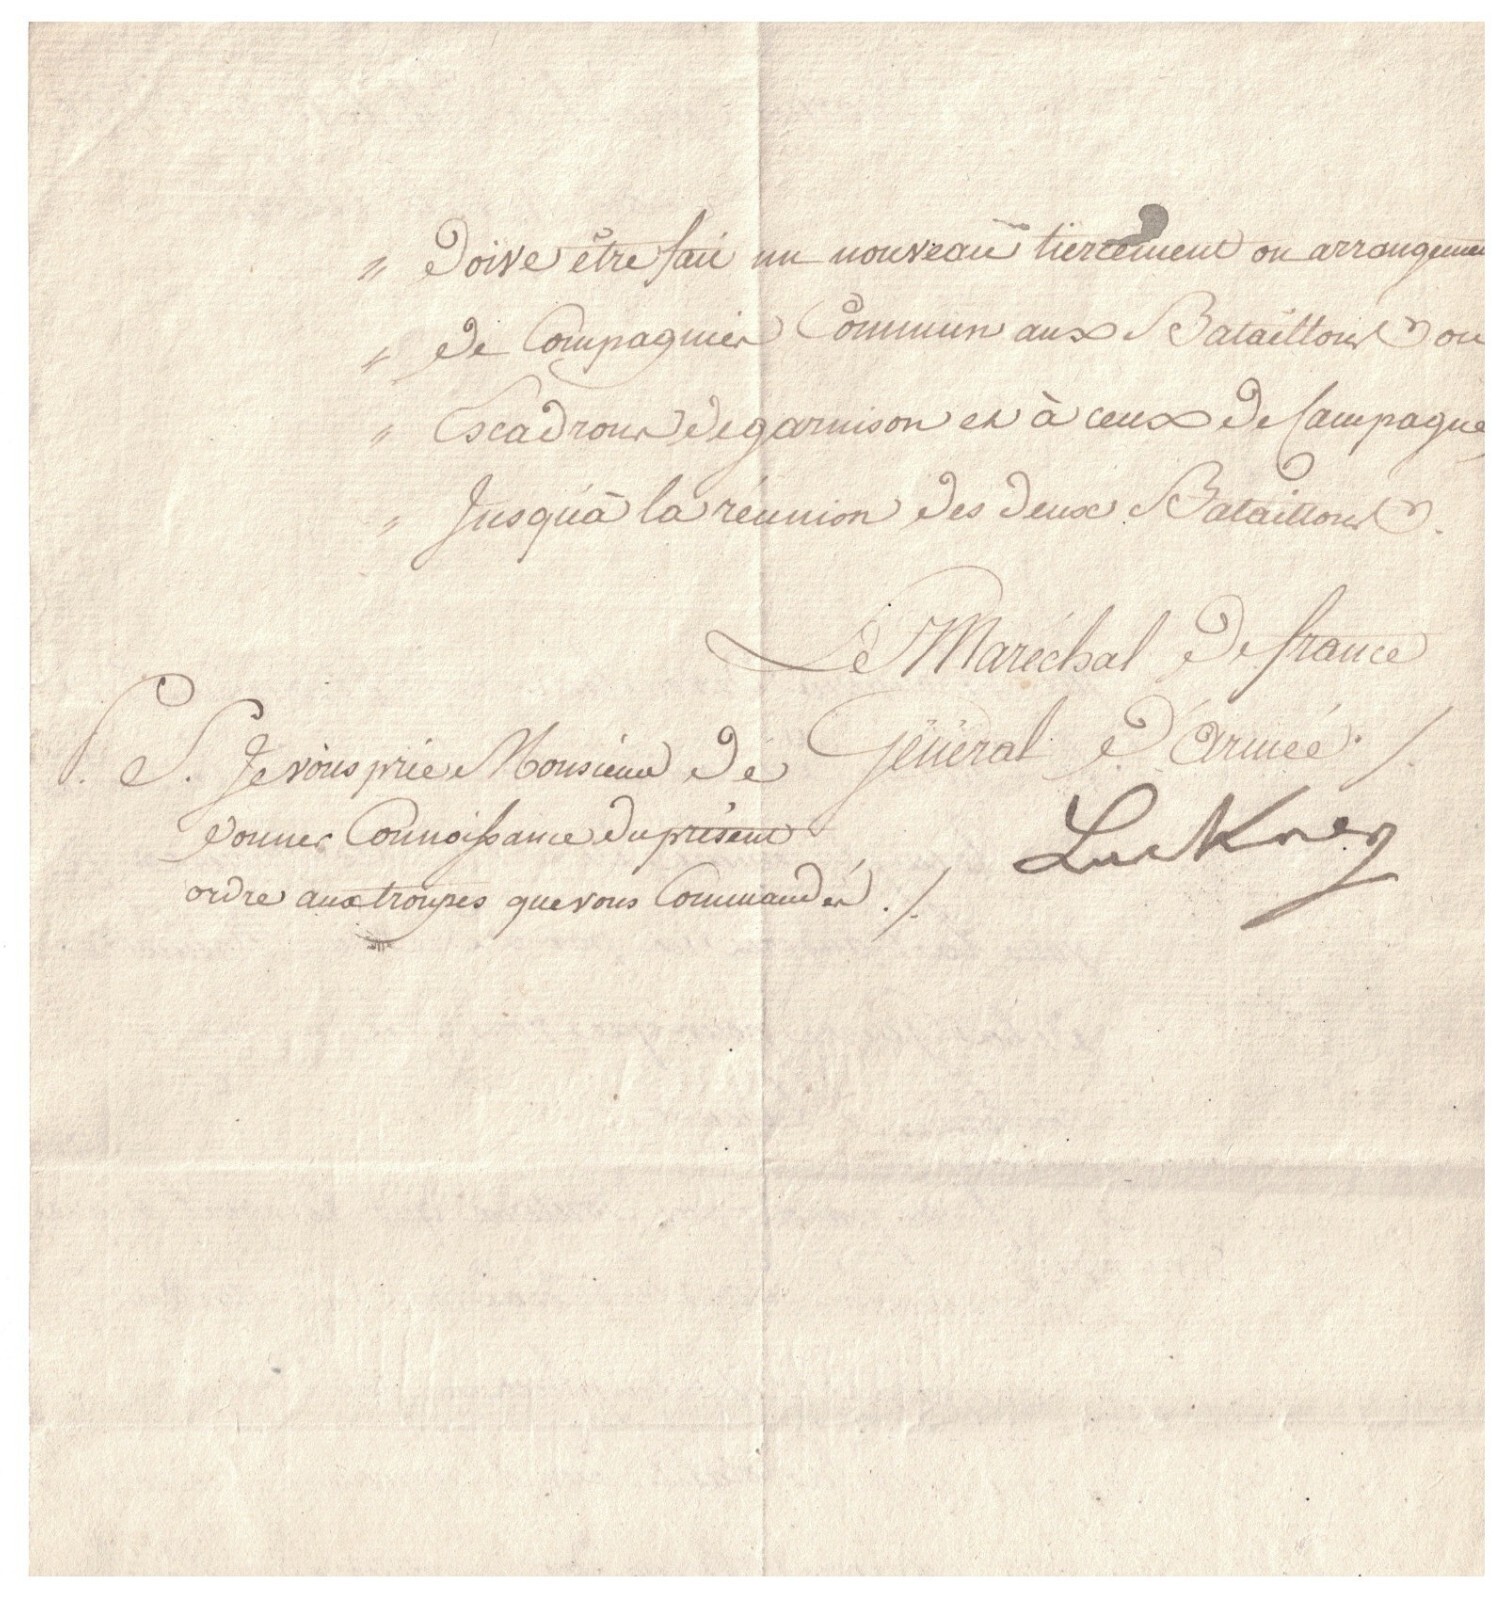 " doive être fait un nouveau tiercement ou arrangemen
" de Compagnies Commun aux Bataillons ou
" Escadrons de garnison et à ceux de Campagne
" Jusqu'à la réunion des deux Bataillons.
Le Maréchal de france
Général d'Armée ./.
Luckner
P. S. Je vous prie Monsieur de
donner Connoissance du présent
ordre aux troupes que vous Commandés ./.